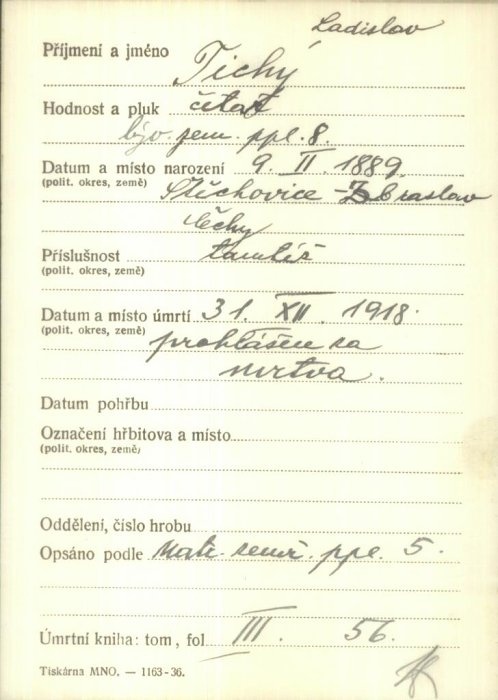 Ladislav
Příjmení a jméno Tichý
Hodnost a pluk četař
býv. zem. ppl. 8.
Datum a místo narození 9. II. 1889.
(polit. okres, země) Štěchovice - Zbraslav
Čechy
Příslušnost tamtéž
(polit. okres, země)
Datum a místo úmrtí 31. XII. 1918.
(polit. okres, země) prohlášen za
mrtva.
Datum pohřbu
Označení hřbitova a místo
(polit. okres, země)
Oddělení, číslo hrobu
Opsáno podle matr. zemř. ppl. 5.
Úmrtní kniha: tom, fol. III. 56.
Tiskárna MNO. — 1163-36.